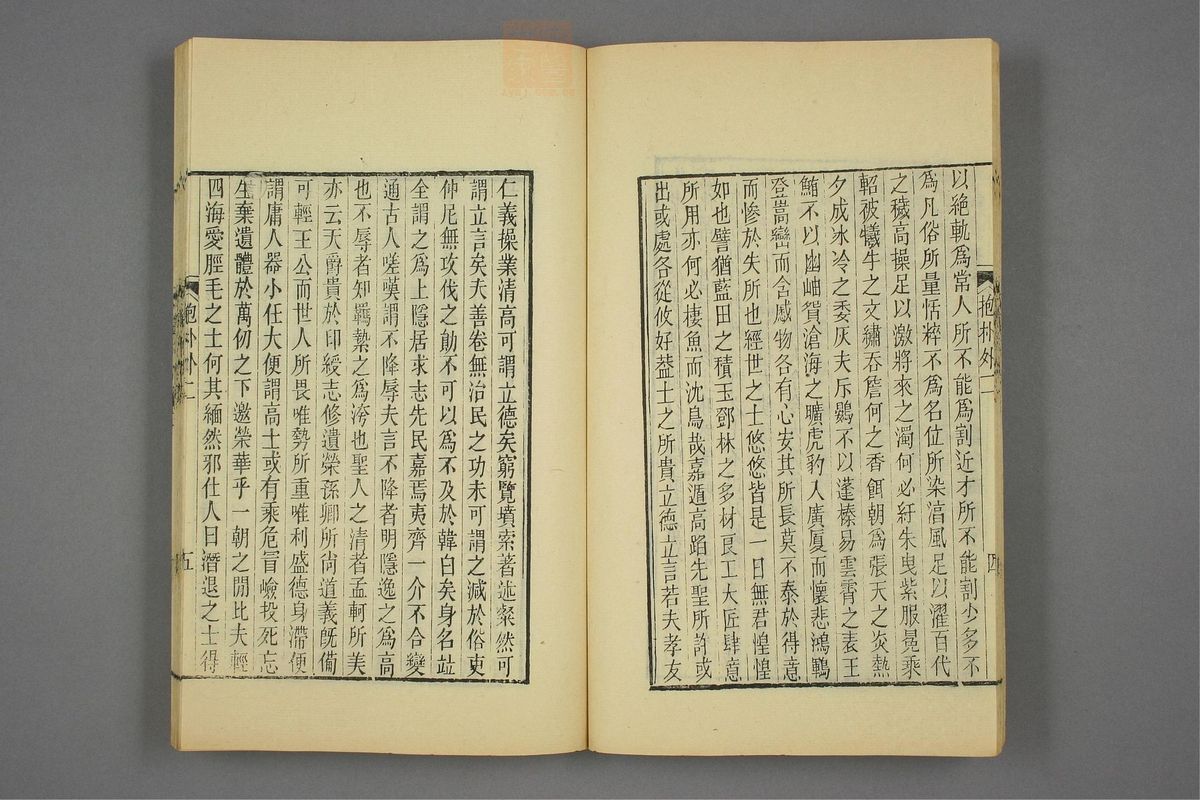 以絶軌爲常人所不能爲割近才所不能割少多不
爲凡俗所量恬粹不爲名位所染淯風足以濯百代
之穢高操足以激將來之濁何必紆朱曳紫服冕乘
軺被犧牛之文繡吞詹何之香餌朝爲張天之炎熱
夕成冰冷之委灰夫斥鷃不以蓬榛易雲霄之表王
鮪不以幽岫貿滄海之曠虎豹人廣厦而懷悲鴻鶤
登嵩巒而含慼物各有心安其所長莫不泰於得意
而慘於失所也經世之士悠悠皆是一日無君惶惶
如也譬猶藍田之積玉鄧林之多材良工大匠肆意
所用亦何必棲魚而沈鳥哉嘉遁高蹈先聖所許或
出或處各從攸好葢士之所貴立德立言若夫孝友
抱朴外二
四
仁義操業清高可謂立德矣窮覽墳索著述粲然可
謂立言矣夫善卷無治民之功未可謂之減於俗吏
仲尼無攻伐之勛不可以爲不及於韓白矣身名竝
全謂之爲上隱居求志先民嘉焉夷齊一介不合變
通古人嗟嘆謂不降辱夫言不降者明隱逸之爲高
也不辱者知羈縶之爲洿也聖人之清者孟軻所美
亦云天爵貴於印綬志修遺榮孫卿所尚道義旣備
可輕王公而世人所畏唯勢所重唯利盛德身滯便
謂庸人器小任大便謂高士或有乘危冒嶮投死忘
生棄遺體於萬仞之下邀榮華乎一朝之閒比夫輕
四海愛脛毛之士何其緬然邪仕人曰潛退之士得
抱朴外二
五